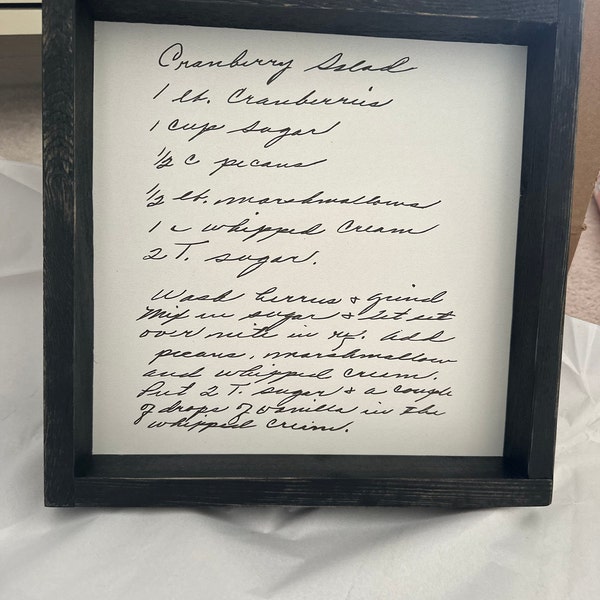 Cranberry Salad
1 lb. Cranberries
1 cup sugar
1/2 c pecans
1/2 lb. marshmallows
1 c whipped cream
2 T. sugar.
Wash berries & grind
Mix in sugar & let set
over nite in ref. Add
pecans, marshmallow
and whipped cream.
Put 2 T. sugar & a couple
of drops of vanilla in the
whipped cream.